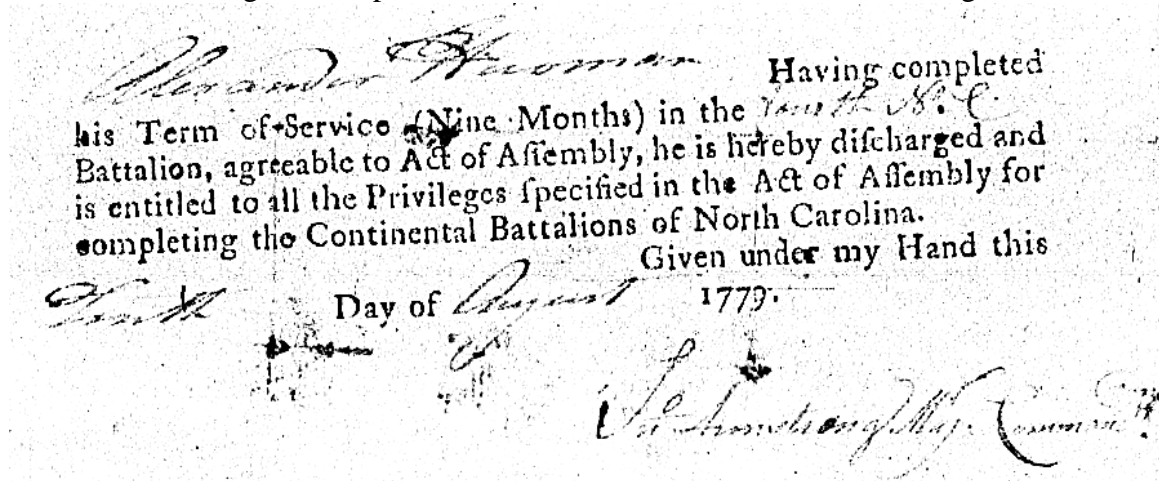 Alexander Hinoman Having completed
his Term of Service (Nine Months) in the N. C.
Battalion, agreeable to Act of Aſſembly, he is hereby diſcharged and
is entitled to all the Privileges ſpecified in the Act of Aſſembly for
completing the Continental Battalions of North Carolina.
Given under my Hand this
Tenth Day of August 1779.
Jno Armstrong Maj. Command